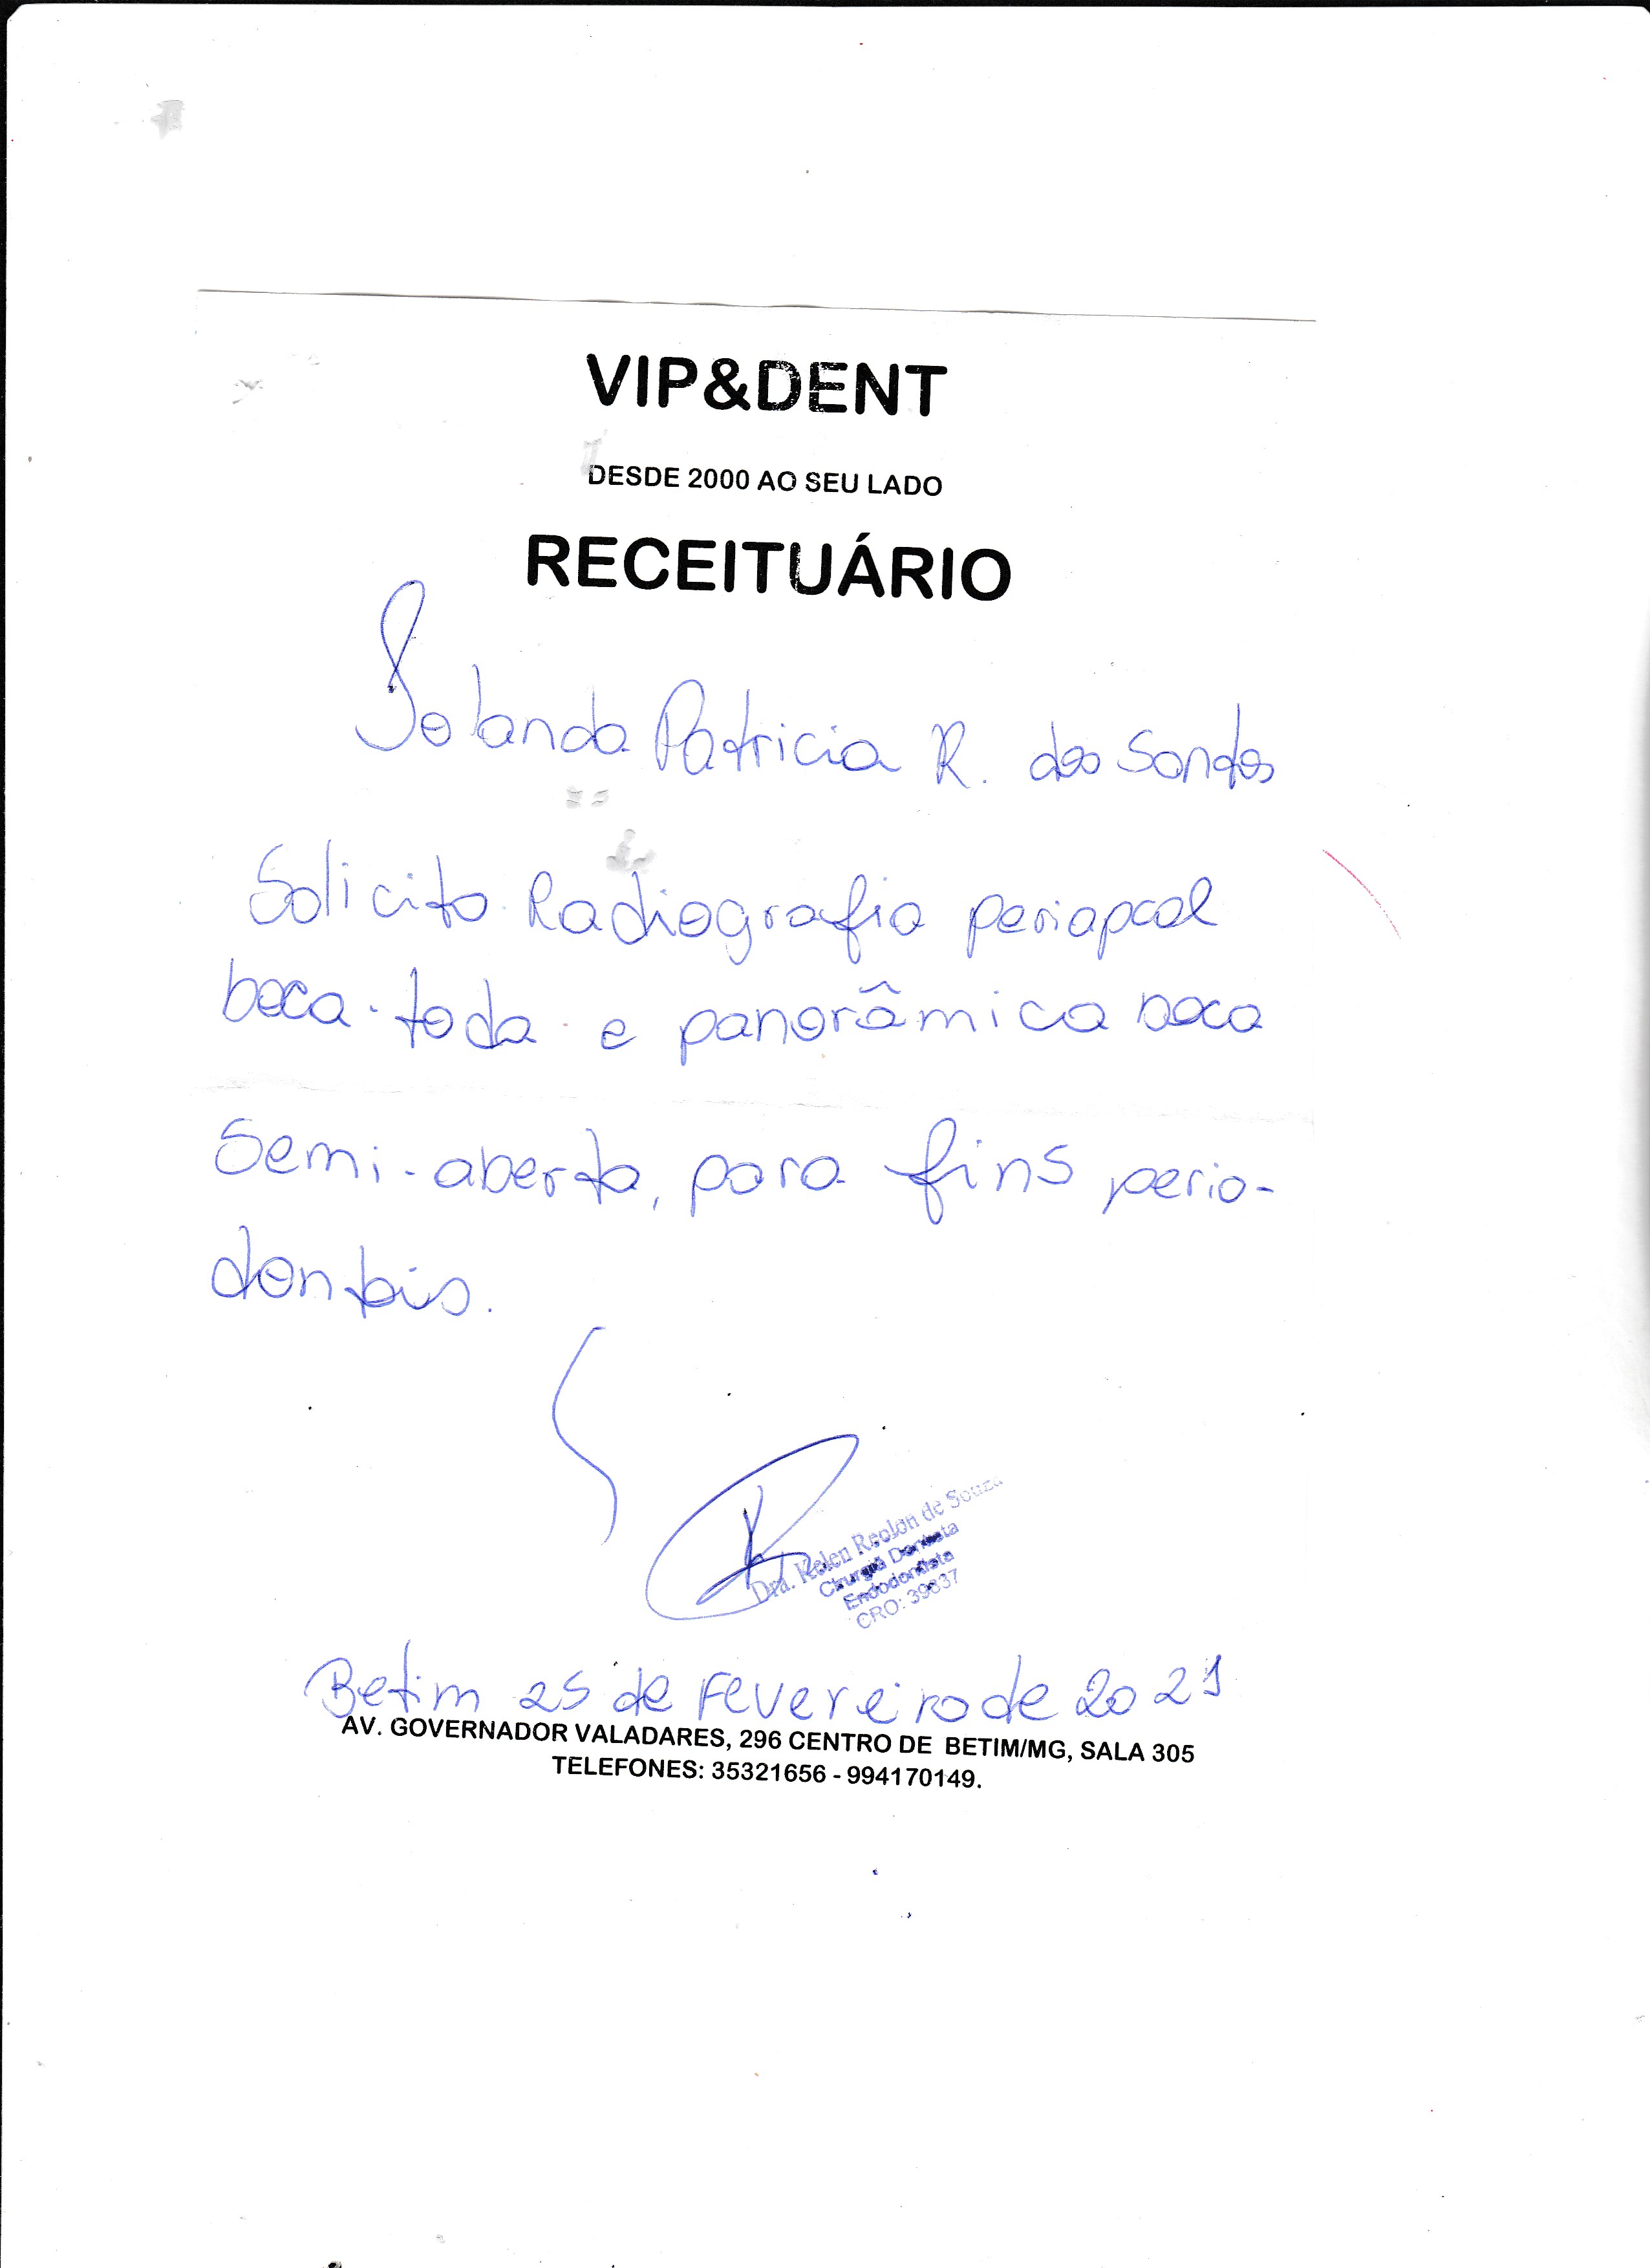 VIP&DENT
DESDE 2000 AO SEU LADO
RECEITUÁRIO
Iolanda Patricia R. dos Santos
Solicito Radiografia periapcal
boca toda e panorâmica boca
Semi-aberta, para fins perio-
dontais.
Dra. Kelen Reolon de Souza
Cirurgiã Dentista
Endodontista
CRO: 39837
Betim 25 de Fevereiro de 2021
AV. GOVERNADOR VALADARES, 296 CENTRO DE BETIM/MG, SALA 305
TELEFONES: 35321656 - 994170149.